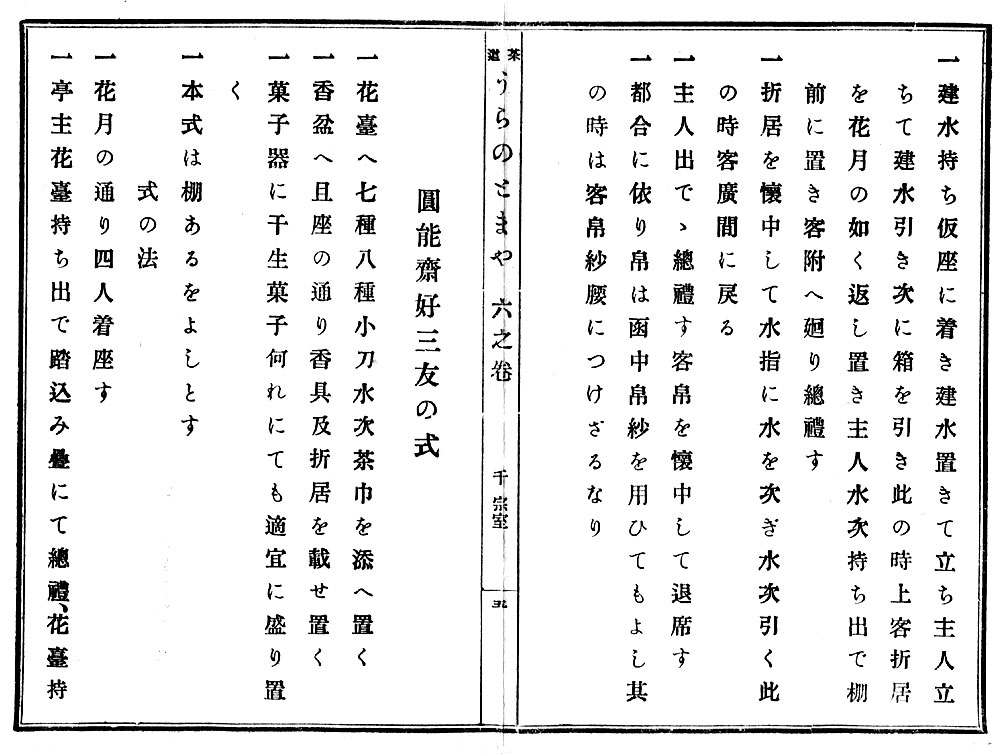 一建水持ち仮座に着き建水置きて立ち主人立
ちて建水引き次に箱を引き此の時上客折居
を花月の如く返し置き主人水次持ち出で棚
前に置き客附へ廻り總禮す
一折居を懷中して水指に水を次ぎ水次引く此
の時客廣間に戻る
一主人出でゝ總禮す客帛を懷中して退席す
一都合に依り帛は凾中帛紗を用ひてもよし其
の時は客帛紗腰につけざるなり
茶道
うらのとまや 六之卷
千宗室
五
圓能齋好三友の式
一花臺へ七種八種小刀水次茶巾を添へ置く
一香盆へ且座の通り香具及折居を載せ置く
一菓子器に干生菓子何れにても適宜に盛り置
く
一本式は棚あるをよしとす
式の法
一花月の通り四人着座す
一亭主花臺持ち出で踏込み疊にて總禮、花臺持